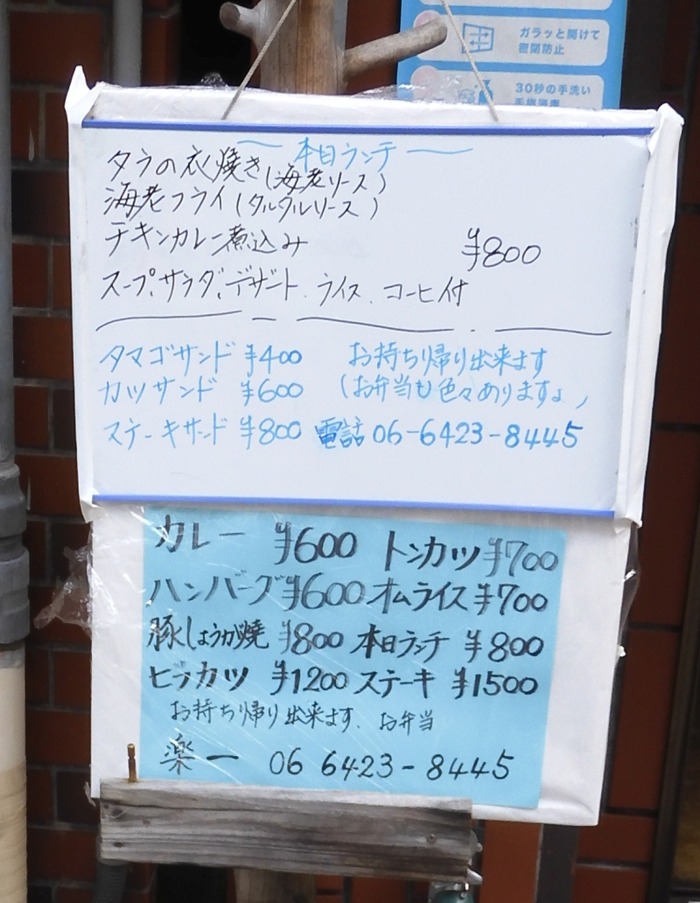 ガラッと開けて
密閉防止
30秒の手洗い
本日ランチ
タラの衣焼き(海老ソース)
海老フライ(タルタルソース)
チキンカレー煮込み ¥800
スープ、サラダ、デザート、ライス、コーヒー付
タマゴサンド ¥400 お持ち帰り出来ます
カツサンド ¥600 (お弁当も色々ありますよ)
ステーキサンド ¥800 電話 06-6423-8445
カレー ¥600 トンカツ ¥700
ハンバーグ ¥600 オムライス ¥700
豚しょうが焼 ¥800 本日ランチ ¥800
ビフカツ ¥1200 ステーキ ¥1500
お持ち帰り出来ます、お弁当
楽一 06 6423-8445